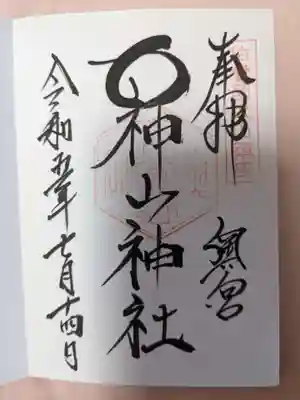 奉拝
奥宮
大神山神社
令和五年七月十四日